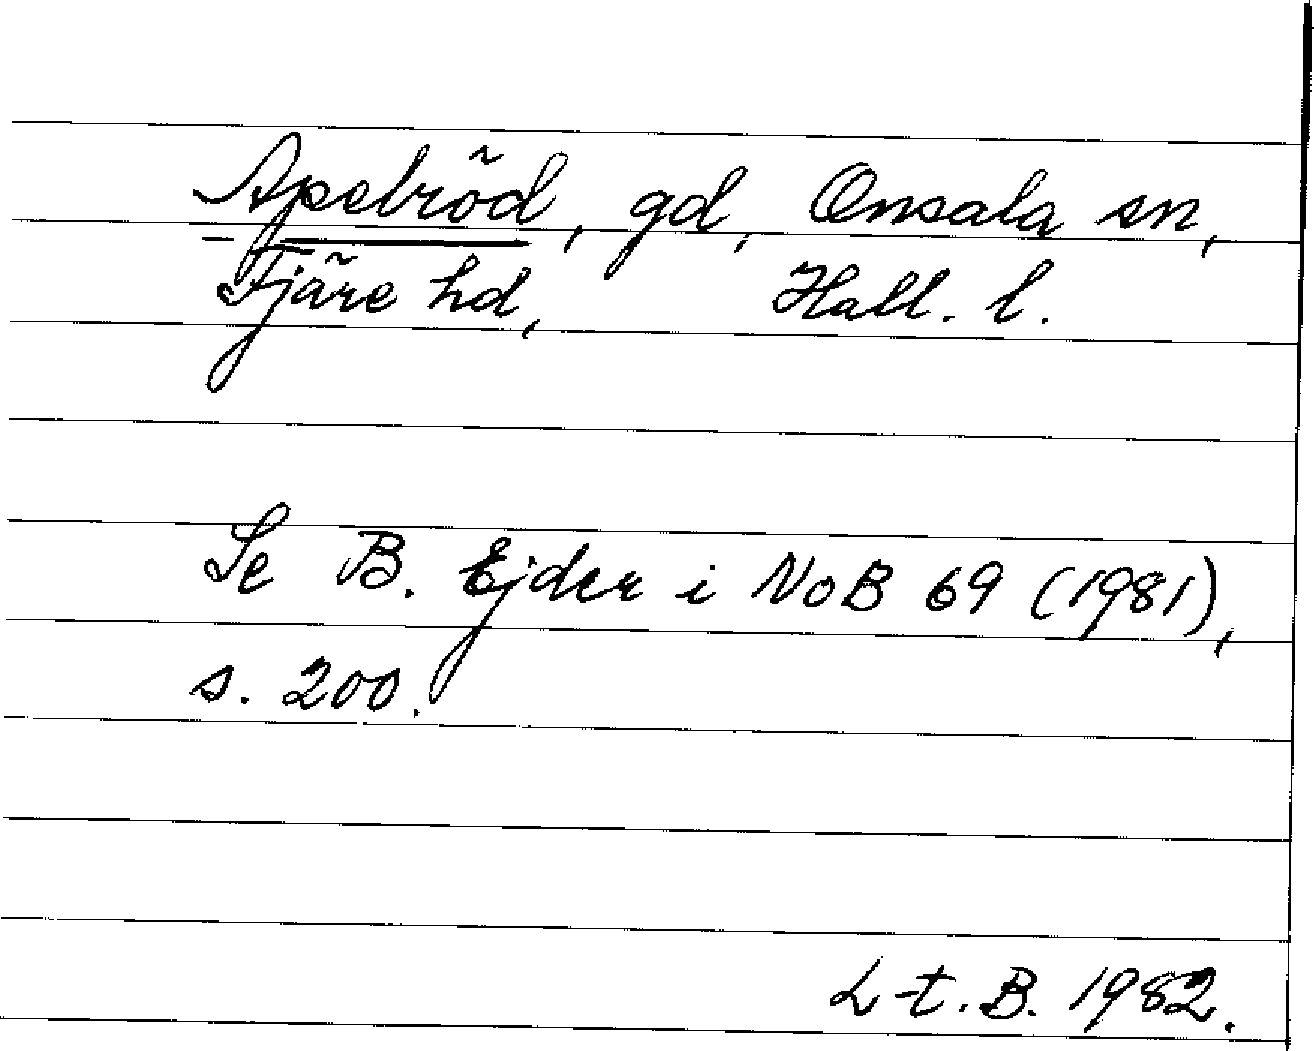 Apelröd, gd, Onsala sn,
Fjäre hd, Hall. l.
Se B. Ejder i NoB 69 (1981),
s. 200.
L-t. B. 1982.